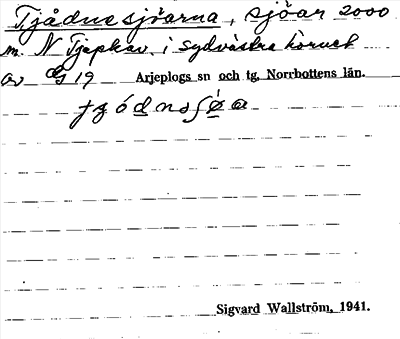 Tjådnesjöarna, sjöar 2000
m. N Tjapkav. i sydvästra hörnet
av 19 Arjeplogs sn och tg, Norrbottens län.
Sigvard Wallström, 1941.